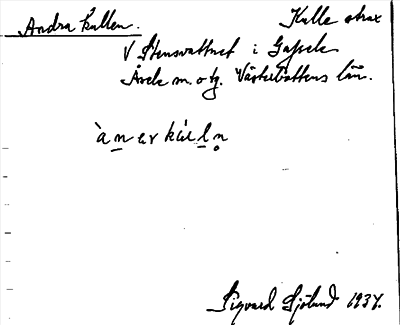 Andra kullen. Kulle strax
V Stensvattnet i Gafsele
Åsele m. o tg. Västerbottens län.
àn er kúlln
Sigvard Sjölund 1937.